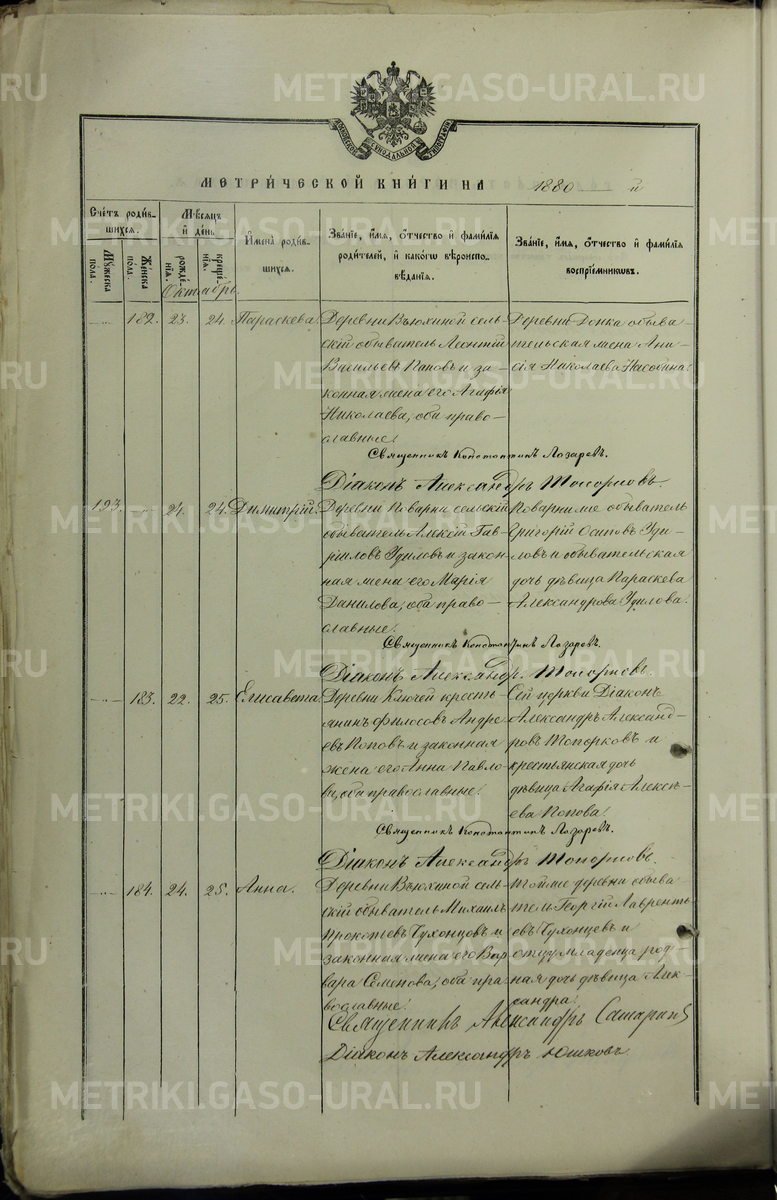 METRIKI.GASO-URAL.RU
МЕТРИ́ЧЕСКОЙ КНИ́ГИ НА 1880 й
Сче́тъ роди́в-
шихся.
Мѣсяцъ
и҆ де́нь.
И҆мена̀ роди́в-
шихся.
Зва́нїе, и҆́мя, ѻ҆́тчество и҆ фамилїя
роди́телей, и҆ како́гѡ вѣроиспо-
вѣ́данїя.
Зва́нїе, и҆́мя, ѻ҆́тчество и҆ фамилїя
воспрїе́мниковъ.
Мꙋ́жеска
пола.
Же́нска
пола.
рожде́-
нїя.
креще́-
нїя.
Октябрь
182. 23. 24. Параскева.
Деревни Вьюхиной сель-
скій обыватель Леонтій
Васильевъ Поповъ и за-
конная жена его Агафія
Николаева, оба право-
славные.
Деревни Донка обыва-
тельская жена Ани-
сія Николаева
Священникъ Константинъ Лазаревъ.
Діаконъ Александръ Топорковъ.
193. 24. 24. Димитрій.
Деревни Поварни сельскій
обыватель Алексій Гав-
ріиловъ Удиловъ и закон-
ная жена его Марія
Данилова, оба право-
славные.
Поварни же обыватель
Григорій Осиповъ Уди-
ловъ и обывательская
дочь дѣвица Параскева
Александрова Удилова.
Священникъ Константинъ Лазаревъ.
Діаконъ Александръ Топорковъ.
183. 22. 25. Елисавета.
Деревни Ключей кресть-
янинъ Филосовъ Андре-
евъ Поповъ и законная
жена его Анна Павло-
ва, оба православные.
Сей церкви Діаконъ
Александръ Александ-
ровъ Топорковъ и
крестьянская дочь
дѣвица Агафія Алексѣ-
ева Попова.
Священникъ Константинъ Лазаревъ.
Діаконъ Александръ Топорковъ.
184. 24. 25. Анна.
Деревни Вьюхиной сель-
скій обыватель Михаилъ
Прокопьевъ Чухонцовъ и
законная жена его Вар-
вара Семенова, оба пра-
вославные.
Той же деревни обыва-
тель Георгій Лавренть-
евъ Чухонцевъ и
отцу младенца род-
ная дочь дѣвица Алек-
сандра.
Священникъ Александръ
Діаконъ Александръ Юшковъ